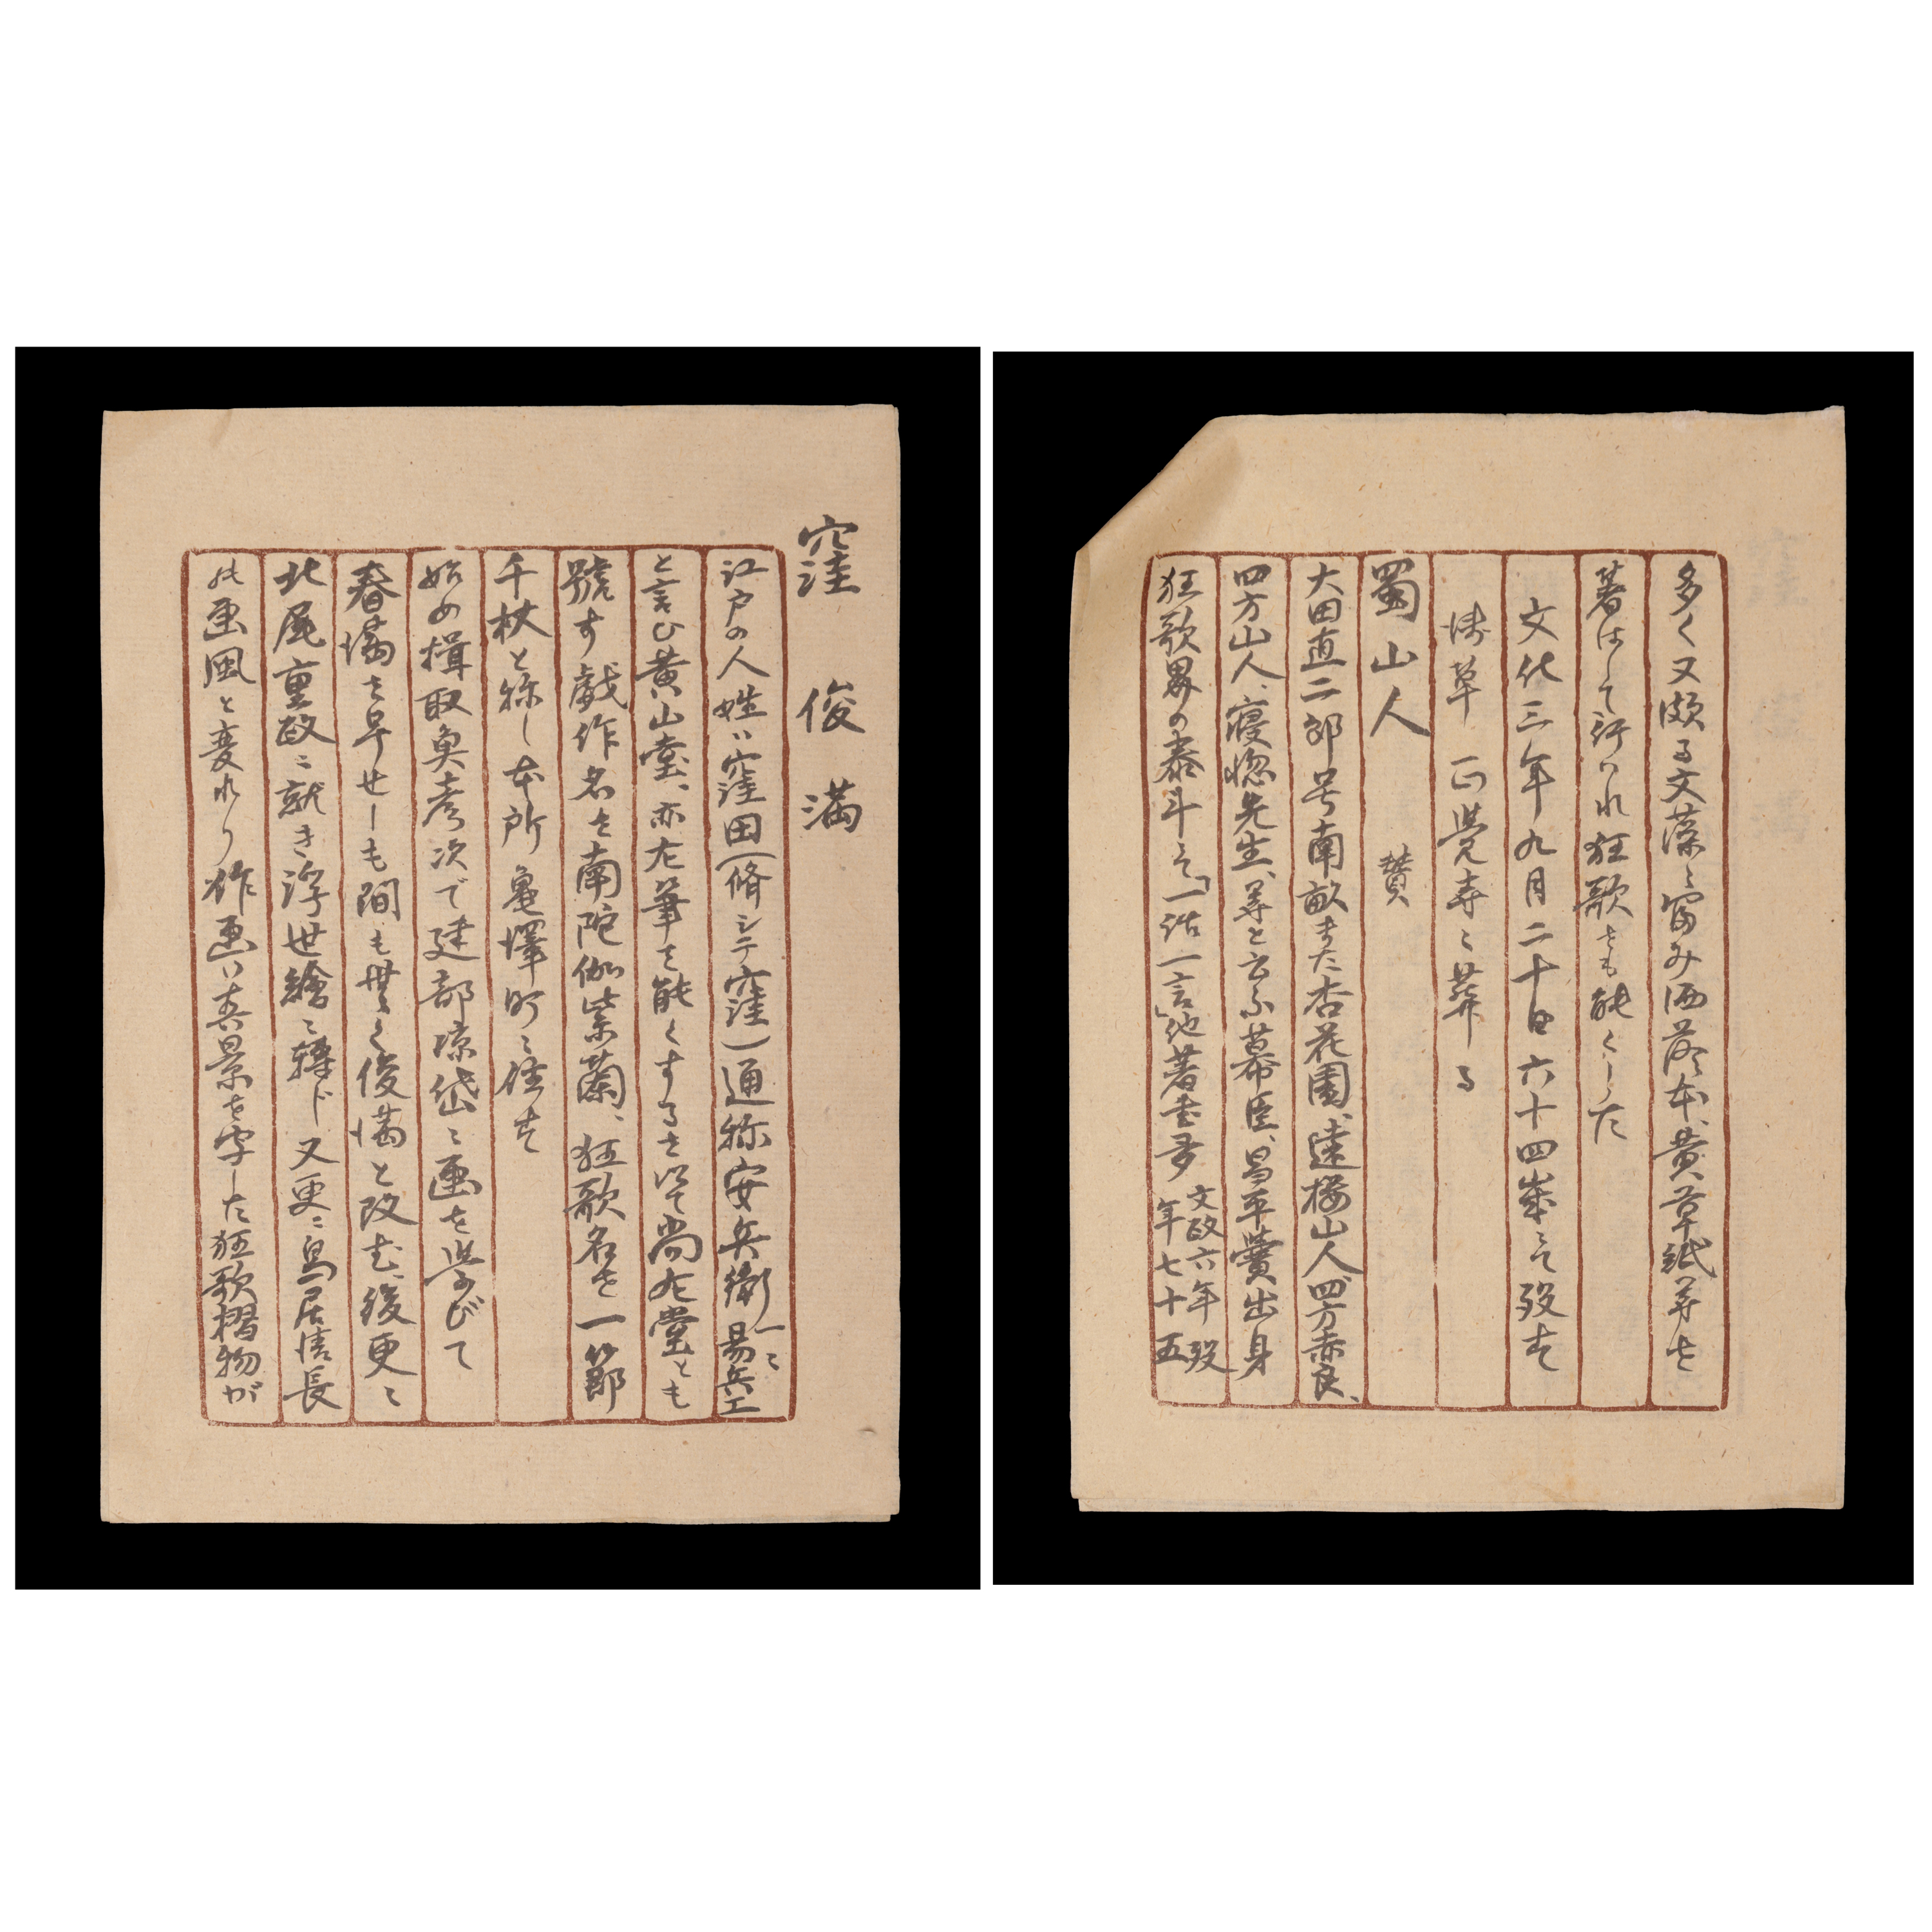 窪 俊 満
江戸の人姓ハ窪田(脩シテ窪)通称安兵衛一ニ易兵エ
と言ひ黄山堂、亦左筆を能くするを以て尚左堂とも
號す戯作名を南陀伽紫蘭、狂歌名を一節
千杖と称し本所亀澤町ニ住す
始め楫取魚彦次で建部凉岱ニ画を学びて
春満を早せしも間も無く俊満と改む、後更ニ
北尾重政ニ就き浮世繪ニ轉ジ又更ニ鳥居清長
の画風と変れり作画ハ真景を写した狂歌摺物が
多く又頗る文藻ニ富み洒落本、黄草紙等を
著はして行ハれ狂歌をも能くした
文化三年九月二十日六十四歳ニて歿す
浅草 正覚寺ニ葬る
蜀山人 賛
大田直二郎号南畝また杏花園、遠桜山人四方赤良、
四方山人、寝惚先生、等と云ふ幕臣、昌平黌出身
狂歌界の泰斗ニて「一話一言」他著書多 文政六年歿
年七十五